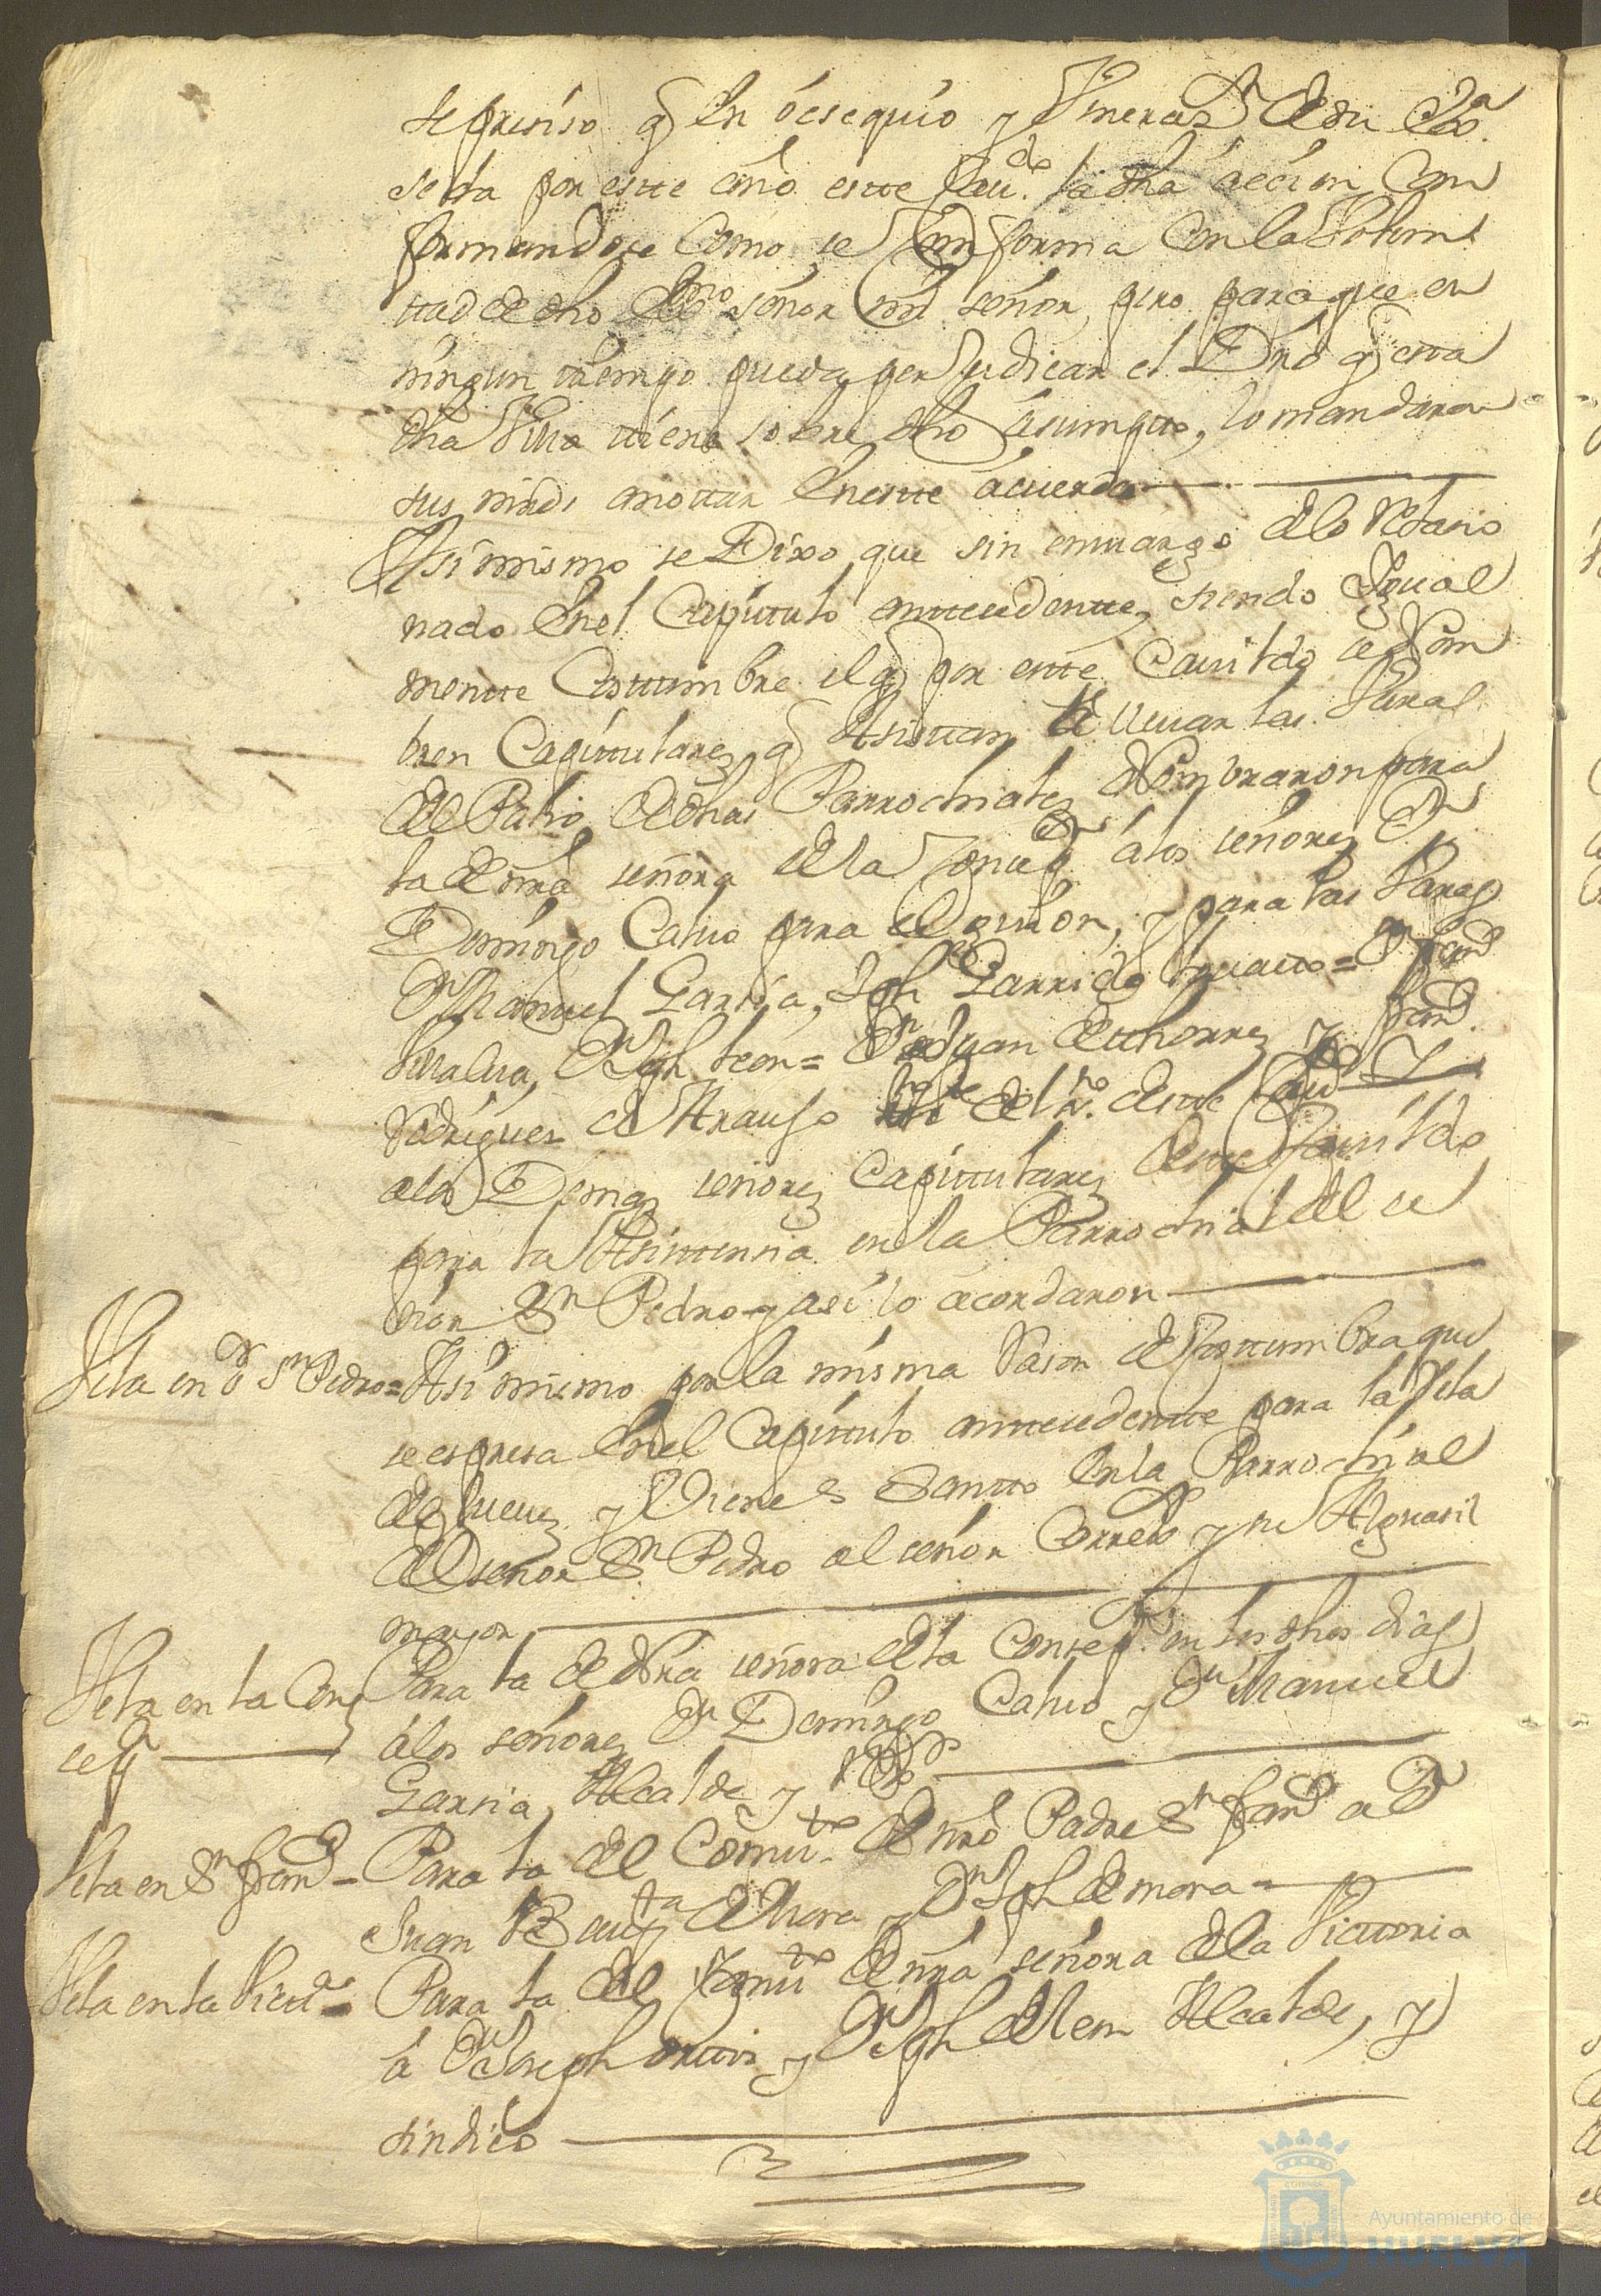 se preciso q̃ en obsequio y Veneraz.n de su Ex.a
seda por este año este Cau.do la dha accion, Con
formandose Como se Conforma Con la Volun
ttad de dho Ex.mo señor mi señor, pero para que en
ningun tiempo pueda perJudicar el Dro q̃ esta
dha Villa ttiene sobre dho asumpto, lo mandaron
sus mrds anottar En este acuerdo
Asi mismo se Dixo que sin emvargo de lo Relasio
nado En el Capitulo anttecedentte, siendo Igual
mentte Costtumbre el q̃ por este Cauildo se Nom
bren Capittulares q̃ Asistan a lleuar las Varas
del Palio de dhas Parrochiales Nombraron para
la de nra señora de la Concep.n a los señores D.n
Domingo Caluo para el guion, y para las Varas
D.n Manuel Garsia, Jph Garrido = D.n Fran.co
Villalua, D.n Jph leon = D.n Juan de thorres y Fran.co
Rodrigues de Araujo de este Cau.do Y
a los Demas señores Capittulares de este Cauildo
para la Asisttensia en la Parrochial del se
ñor S.n Pedro y asi lo acordaron
Vela en S.r S.n Pedro = Asi mismo por la misma Rason de Costtumbra que
se espresa En el Capittulo anttecedentte para la Vela
de Jueues y Viernes Santto En la Parrochial
del señor S.n Pedro al señor Correx.or y su Alguasil
mayor
Vela en la Con Para la de Nra señora de la Concep.n en los dhos dias
cep.n a los señores D.n Domingo Caluo y D.n Manuel
Garsia, Alcalde y
Vela en S.n Fran.co = Para la del Comu.to de nro Padre S.n Fran.co a D.n
Juan Baup.ta de Mora y D.n Jph de mora
Vela en la Vict.a = Para la del Comu.to de nra señora de la Victtoria
a D.n Joseph y D.n Jph de leon Alcalde, y
sindico
Ayuntamiento de
HUELVA